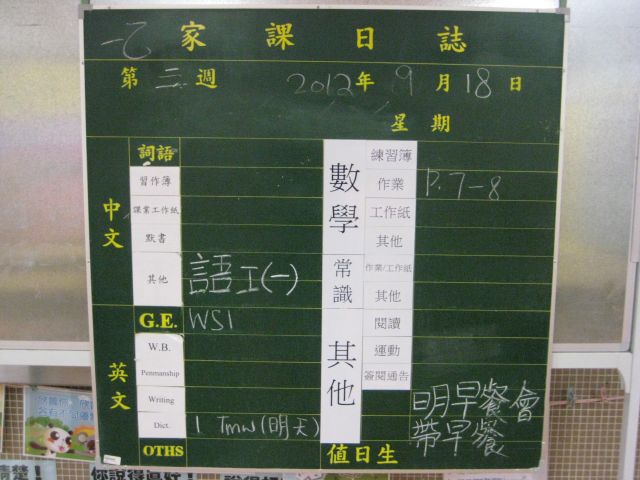 一乙 家課日誌
第三週 2012年9月18日
星期
中文
詞語
習作簿
課業工作紙
默書
其他 語工(一)
英文
G.E. WS1
W.B.
Penmanship
Writing
Dict. 1 Tmw(明天)
OTHS
數學
練習簿
作業 P.7-8
工作紙
其他
常識
作業/工作紙
其他
其他
閱讀
運動
簽閱通告
明早餐會
帶早餐
值日生
你說得真好!